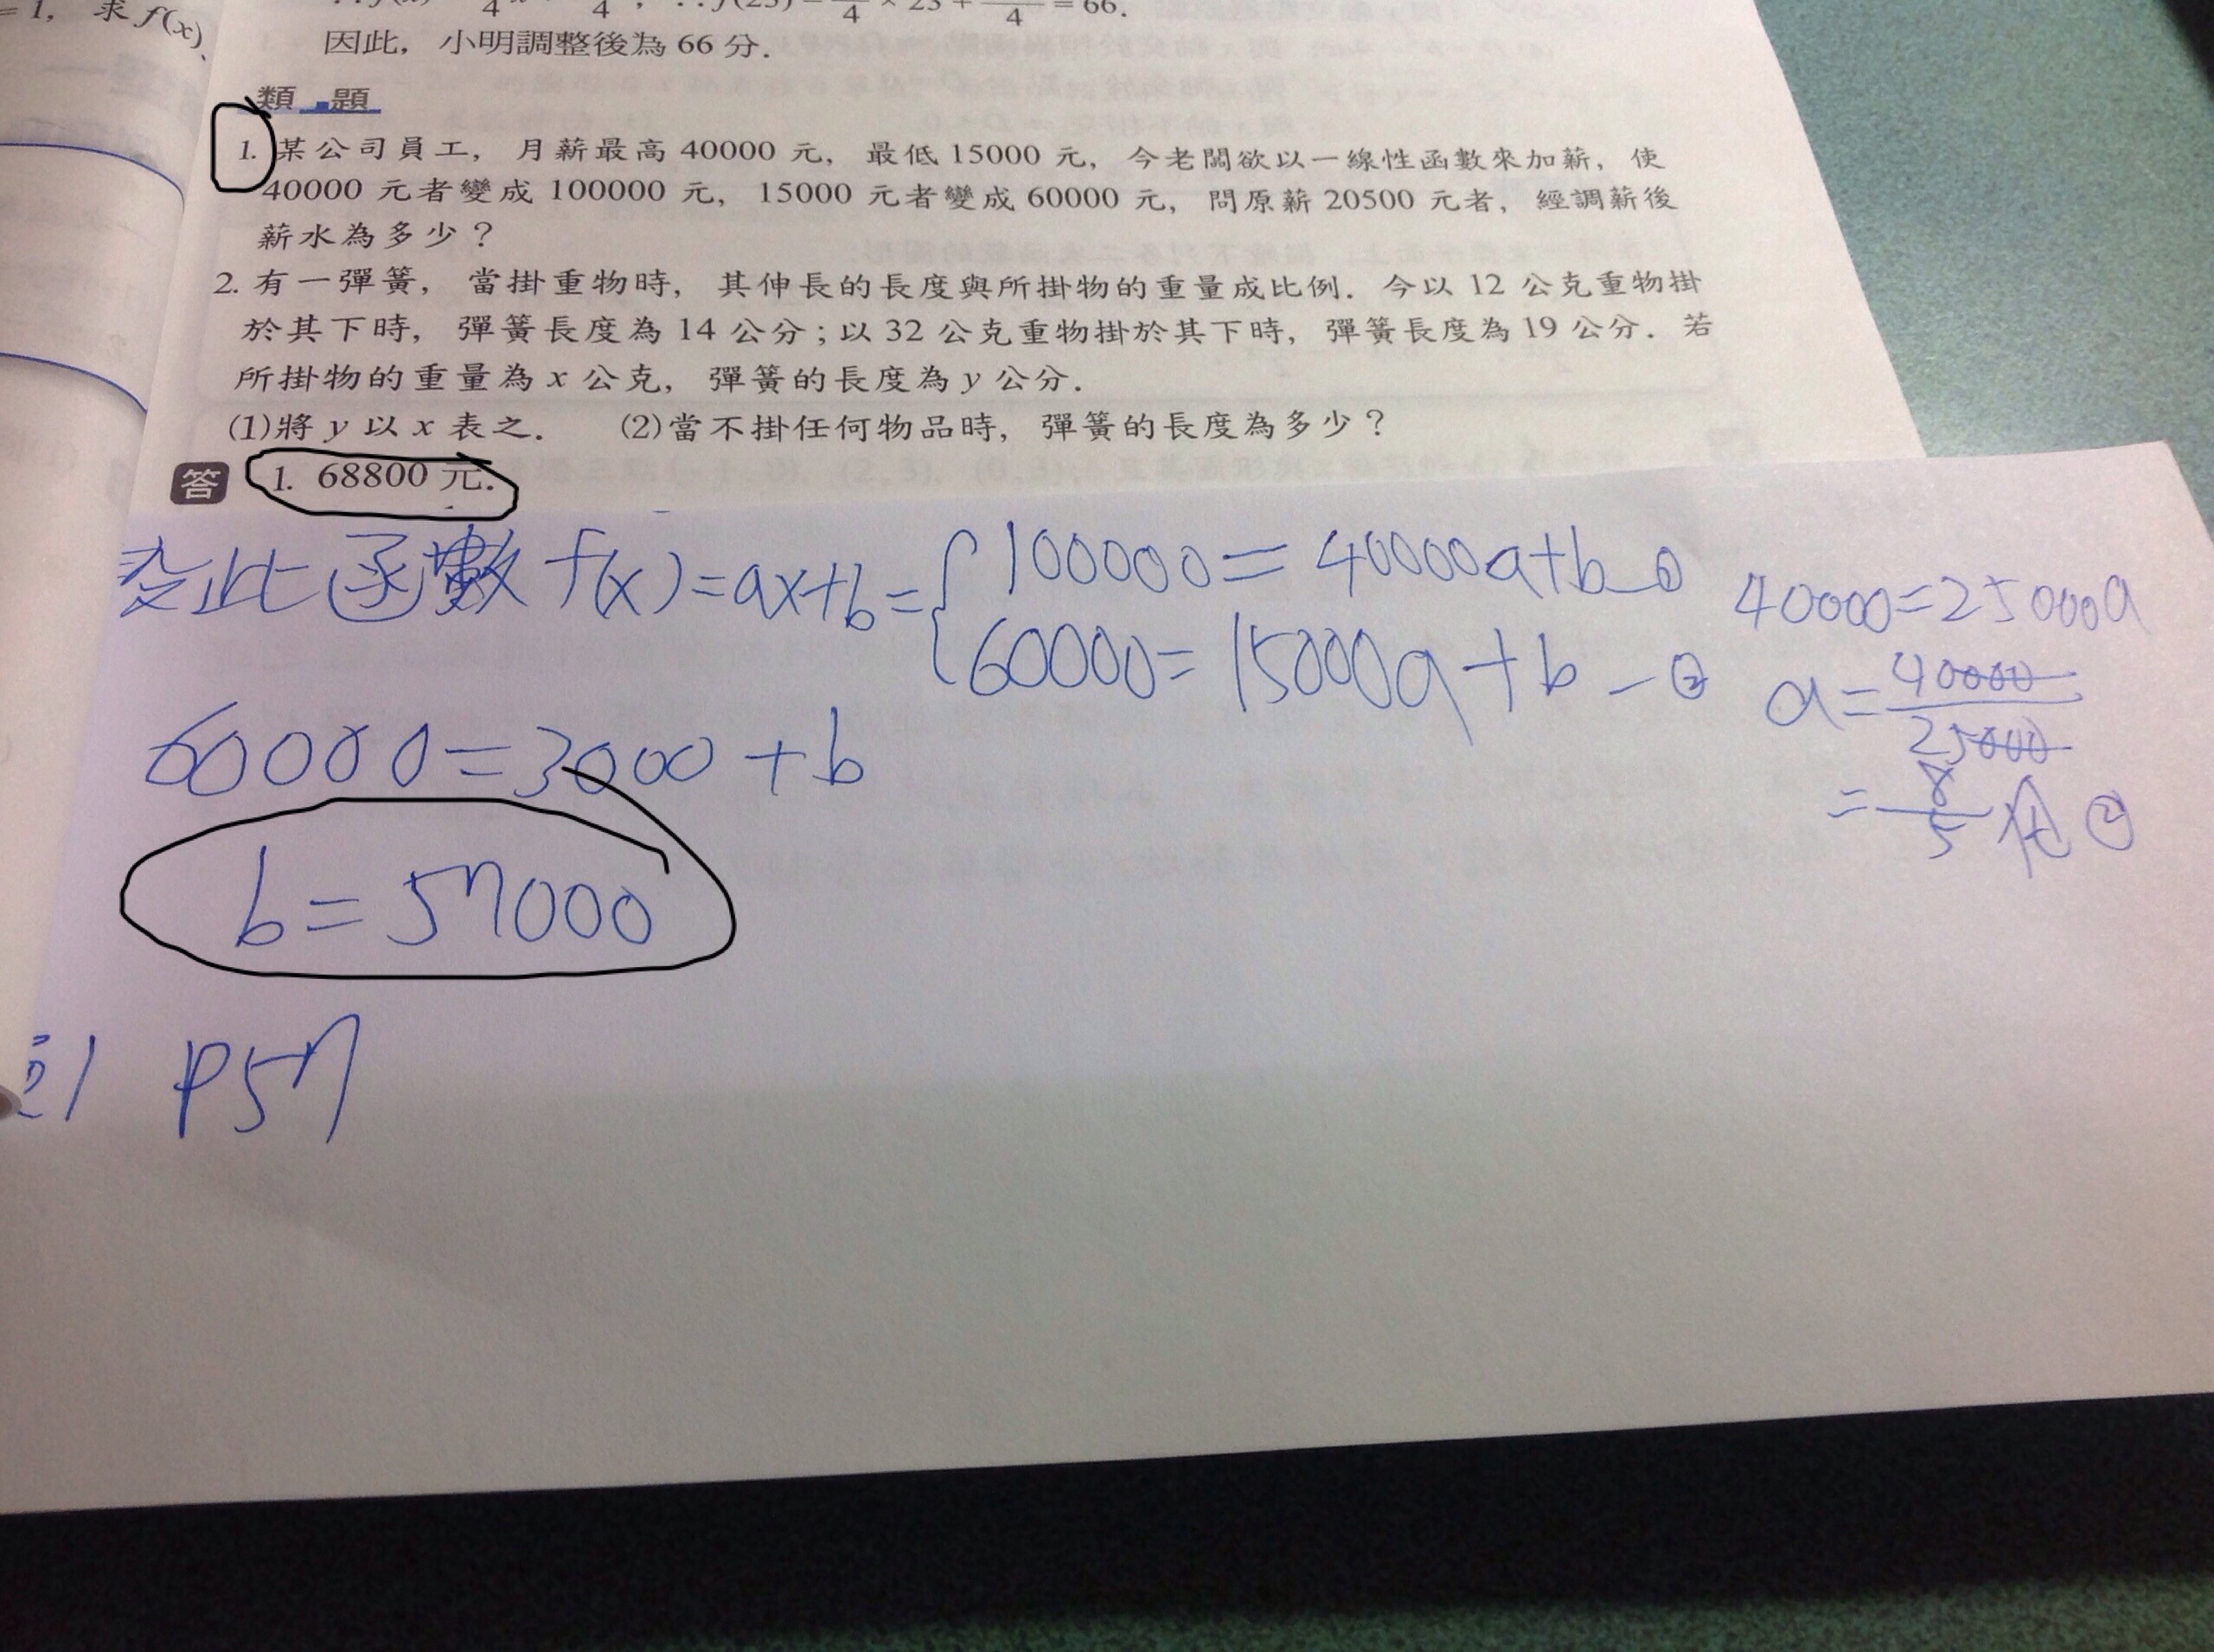 = 1, 求 f(x)、
因此, 小明調整後為 66 分.
類 題
1. 某公司員工, 月薪最高 40000 元, 最低 15000 元, 今老闆欲以一線性函數來加薪, 使
40000 元者變成 100000 元, 15000 元者變成 60000 元, 問原薪 20500 元者, 經調薪後
薪水為多少?
2. 有一彈簧, 當掛重物時, 其伸長的長度與所掛物的重量成比例. 今以 12 公克重物掛
於其下時, 彈簧長度為 14 公分; 以 32 公克重物掛於其下時, 彈簧長度為 19 公分. 若
所掛物的重量為 x 公克, 彈簧的長度為 y 公分.
(1)將 y 以 x 表之. (2)當不掛任何物品時, 彈簧的長度為多少?
答 1. 68800 元.
設此函數 f(x)=ax+b= { 100000=40000a+b—①
60000=15000a+b—②
40000=25000a
a=40000/25000
=8/5 代②
60000=3000+b
b=57000
P57